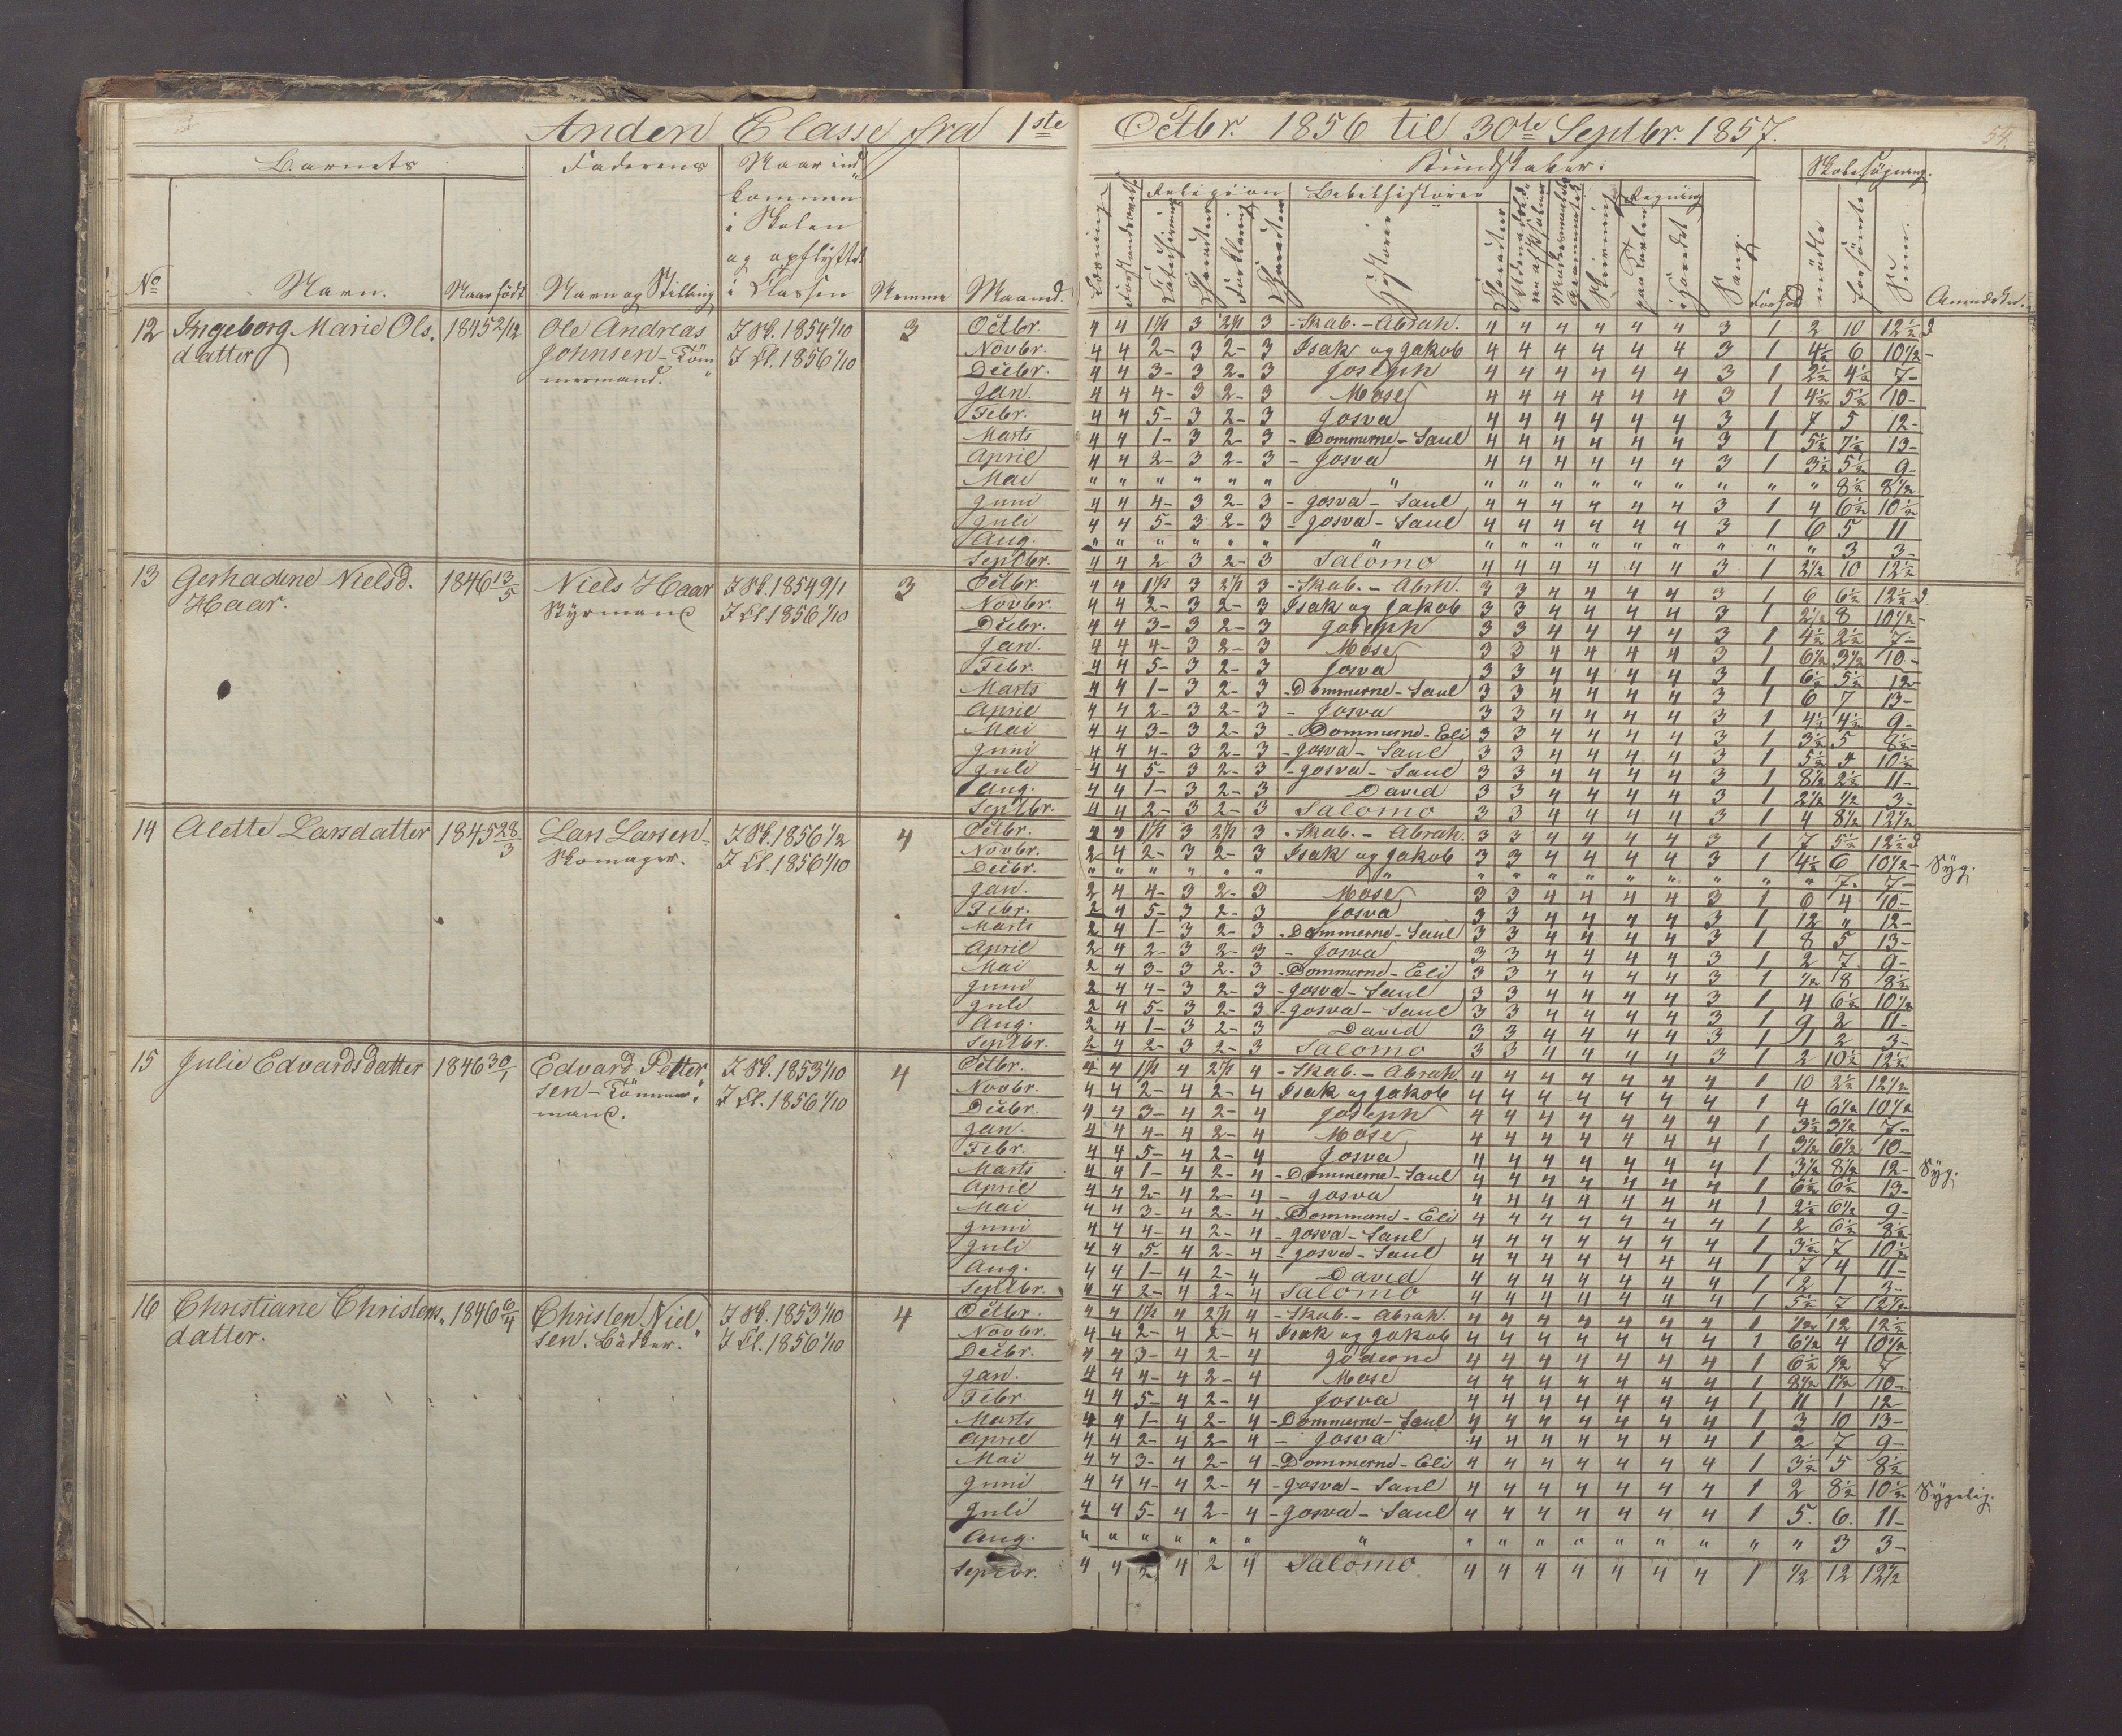 Anden Classe fra 1ste Octbr. 1856 til 30te Septbr. 1857.
Barnets Faderens Naar ind
kommen
i Skolen
og opflyttet
i Klassen
No Navn. Naar født Navn og Stilling Nemme Maaned.
Kundskaber. Skolesøgning.
Religion Bibelhistorie Regning
Læsning Forklaring Historie Skrivning paa Tavlen i Hovedet Sang. Forhold mødte forsømte Sum. Anmærkn.
12 Ingeborg Marie Ols. 1845 2/12 Ole Andreas I Sk. 1854 1/10 3
datter Johnsen - Töm I Cl. 1856 1/10
mermand.
Octbr. 4 4 1 1/2 3 2 1/2 3 - Skab. - Abrah. 4 4 4 4 4 4 3 1 2 10 12 1/2
Novbr. 4 4 2- 3 2- 3 Isak og Jakob 4 4 4 4 4 4 3 1 4 1/2 6 10 1/2 -
Decbr. 4 4 3- 3 2- 3 Joseph 4 4 4 4 4 4 3 1 2 1/2 4 1/2 7-
Jan. 4 4 4- 3 2- 3 Mose 4 4 4 4 4 4 3 1 4 1/2 5 1/2 10-
Febr. 4 4 5- 3 2- 3 Josva 4 4 4 4 4 4 3 1 7 5 12-
Marts 4 4 1- 3 2- 3 - Dommerne - Saul 4 4 4 4 4 4 3 1 5 1/2 7 1/2 13-
April 4 4 2- 3 2- 3 - Josva 4 4 4 4 4 4 3 1 3 1/2 5 1/2 9-
Mai " " " " " " " " " " " " " " " " 8 1/2 8 1/2
Juni 4 4 4- 3 2- 3 - Josva - Saul 4 4 4 4 4 4 3 1 4 6 1/2 10 1/2
Juli 4 4 5- 3 2- 3 - Josva - Saul 4 4 4 4 4 4 3 1 6 5 11
Aug. " " " " " " " " " " " " " " " " 3 3-
Septbr. 4 4 2 3 2- 3 Salomo 4 4 4 4 4 4 3 1 2 1/2 10 12 1/2
13 Gerhadine Nielsd. 1846 13/5 Niels Haar I Sk. 1854 9/1 3
Haar. Styrmand I Cl. 1856 1/10
Octbr. 4 4 1 1/2 3 2 1/2 3 - Skab. - Abrh. 3 3 4 4 4 4 3 1 6 6 1/2 12 1/2
Novbr. 4 4 2- 3 2- 3 Isak og Jakob 3 3 4 4 4 4 3 1 2 1/2 8 10 1/2 -
Decbr. 4 4 3- 3 2- 3 Joseph 3 3 4 4 4 4 3 1 4 1/2 2 1/2 7-
Jan. 4 4 4- 3 2- 3 Mose 3 3 4 4 4 4 3 1 6 1/2 3 1/2 10-
Febr. 4 4 5- 3 2- 3 Josva 3 3 4 4 4 4 3 1 6 1/2 5 1/2 12-
Marts 4 4 1- 3 2- 3 - Dommerne - Saul 3 3 4 4 4 4 3 1 6 7 13-
April 4 4 2- 3 2- 3 - Josva 3 3 4 4 4 4 3 1 4 1/2 4 1/2 9-
Mai 4 4 3- 3 2- 3 - Dommerne - Eli 3 3 4 4 4 4 3 1 3 1/2 5 8 1/2
Juni 4 4 4- 3 2- 3 - Josva - Saul 3 3 4 4 4 4 3 1 5 1/2 5 10 1/2
Juli 4 4 5- 3 2- 3 - Josva - Saul 3 3 4 4 4 4 3 1 8 1/2 2 1/2 11-
Aug. 4 4 1- 3 2- 3 David 3 3 4 4 4 4 3 1 2 1/2 1/2 3-
Septbr. 4 4 2- 3 2- 3 Salomo 3 3 4 4 4 4 3 1 4 8 1/2 12 1/2
14 Alette Larsdatter 1845 28/3 Lars Larsen - I Sk. 1856 1/2 4
Skomager. I Cl. 1856 1/10
Octbr. 1 1/2 3 2 1/2 3 - Skab. - Abrah. 3 3 4 4 4 4 3 1 7 5 1/2 12 1/2
Novbr. 2 4 2- 3 2- 3 Isak og Jakob 3 3 4 4 4 4 3 1 4 1/2 6 10 1/2 - Syg.
Decbr. " " " " " " " " " " " " " " " " 7- 7-
Jan. 2 4 4- 3 2- 3 Mose 3 3 4 4 4 4 3 1 6 4 10-
Febr. 2 4 5- 3 2- 3 Josva 3 3 4 4 4 4 3 1 12 " 12-
Marts 2 4 1- 3 2- 3 - Dommerne - Saul 3 3 4 4 4 4 3 1 8 5 13-
April 2 4 2- 3 2- 3 - Josva 3 3 4 4 4 4 3 1 2 7 9-
Mai 2 4 3- 3 2- 3 - Dommerne - Eli 3 3 4 4 4 4 3 1 1/2 8 8 1/2
Juni 2 4 4- 3 2- 3 - Josva - Saul 3 3 4 4 4 4 3 1 4 6 1/2 10 1/2
Juli 2 4 5- 3 2- 3 - Josva - Saul 3 3 4 4 4 4 3 1 9 2 11-
Aug. 2 4 1- 3 2- 3 David 3 3 4 4 4 4 3 1 1 2 3-
Septbr. 2 4 2- 3 2- 3 Salomo 3 3 4 4 4 4 3 1 2 10 1/2 12 1/2
15 Julie Edvardsdatter 1846 30/1 Edvard Petter I Sk. 1853 1/10 4
sen - Tömmer I Cl. 1856 1/10
mand.
Octbr. 4 4 1 1/2 4 2 1/2 4 - Skab. - Abrah. 4 4 4 4 4 4 4 1 10 2 1/2 12 1/2
Novbr. 4 4 2- 4 2- 4 Isak og Jakob 4 4 4 4 4 4 4 1 4 6 1/2 10 1/2
Decbr. 4 4 3- 4 2- 4 Joseph 4 4 4 4 4 4 4 1 3 1/2 3 1/2 7-
Jan. 4 4 4- 4 2- 4 Mose 4 4 4 4 4 4 4 1 3 1/2 6 1/2 10-
Febr. 4 4 5- 4 2- 4 Josva 4 4 4 4 4 4 4 1 3 1/2 8 1/2 12- Syg.
Marts 4 4 1- 4 2- 4 - Dommerne - Saul 4 4 4 4 4 4 4 1 6 1/2 6 1/2 13-
April 4 4 2- 4 2- 4 - Josva 4 4 4 4 4 4 4 1 2 1/2 6 1/2 9-
Mai 4 4 3- 4 2- 4 - Dommerne - Eli 4 4 4 4 4 4 4 1 2 6 1/2 8 1/2
Juni 4 4 4- 4 2- 4 - Josva - Saul 4 4 4 4 4 4 4 1 3 1/2 7 10 1/2
Juli 4 4 5- 4 2- 4 - Josva - Saul 4 4 4 4 4 4 4 1 7 4 11-
Aug. 4 4 1- 4 2- 4 David 4 4 4 4 4 4 4 1 2 1 3-
Septbr. 4 4 2- 4 2- 4 Salomo 4 4 4 4 4 4 4 1 5 1/2 7 12 1/2
16 Christiane Christens„ 1846 6/4 Christen Niel„ I Sk. 1853 1/10 4
datter. sen. Bødker. I Cl. 1856 1/10
Octbr. 4 4 1 1/2 4 2 1/2 4 - Skab. - Abrah. 4 4 4 4 4 4 4 1 1/2 12 12 1/2
Novbr. 4 4 2- 4 2- 4 Isak og Jakob 4 4 4 4 4 4 4 1 6 1/2 4 10 1/2
Decbr. 4 4 3- 4 2- 4 Jøderne 4 4 4 4 4 4 4 1 6 1/2 1/2 7
Jan. 4 4 4- 4 2- 4 Mose 4 4 4 4 4 4 4 1 8 1/2 1 1/2 10-
Febr. 4 4 5- 4 2- 4 Josva 4 4 4 4 4 4 4 1 11 1 12
Marts 4 4 1- 4 2- 4 - Dommerne - Saul 4 4 4 4 4 4 4 1 3 10 13-
April 4 4 2- 4 2- 4 - Josva 4 4 4 4 4 4 4 1 2 7 9-
Mai 4 4 3- 4 2- 4 - Dommerne - Eli 4 4 4 4 4 4 4 1 3 1/2 5 8 1/2
Juni 4 4 4- 4 2- 4 - Josva - Saul 4 4 4 4 4 4 4 1 2 8 1/2 10 1/2 Sygelig.
Juli 4 4 5- 4 2- 4 - Josva - Saul 4 4 4 4 4 4 4 1 5. 6. 11-
Aug. " " " " " " " " " " " " " " " " 3 3-
Septbr. 4 4 2 4 2 4 Salomo. 4 4 4 4 4 4 4 1 1/2 12 12 1/2